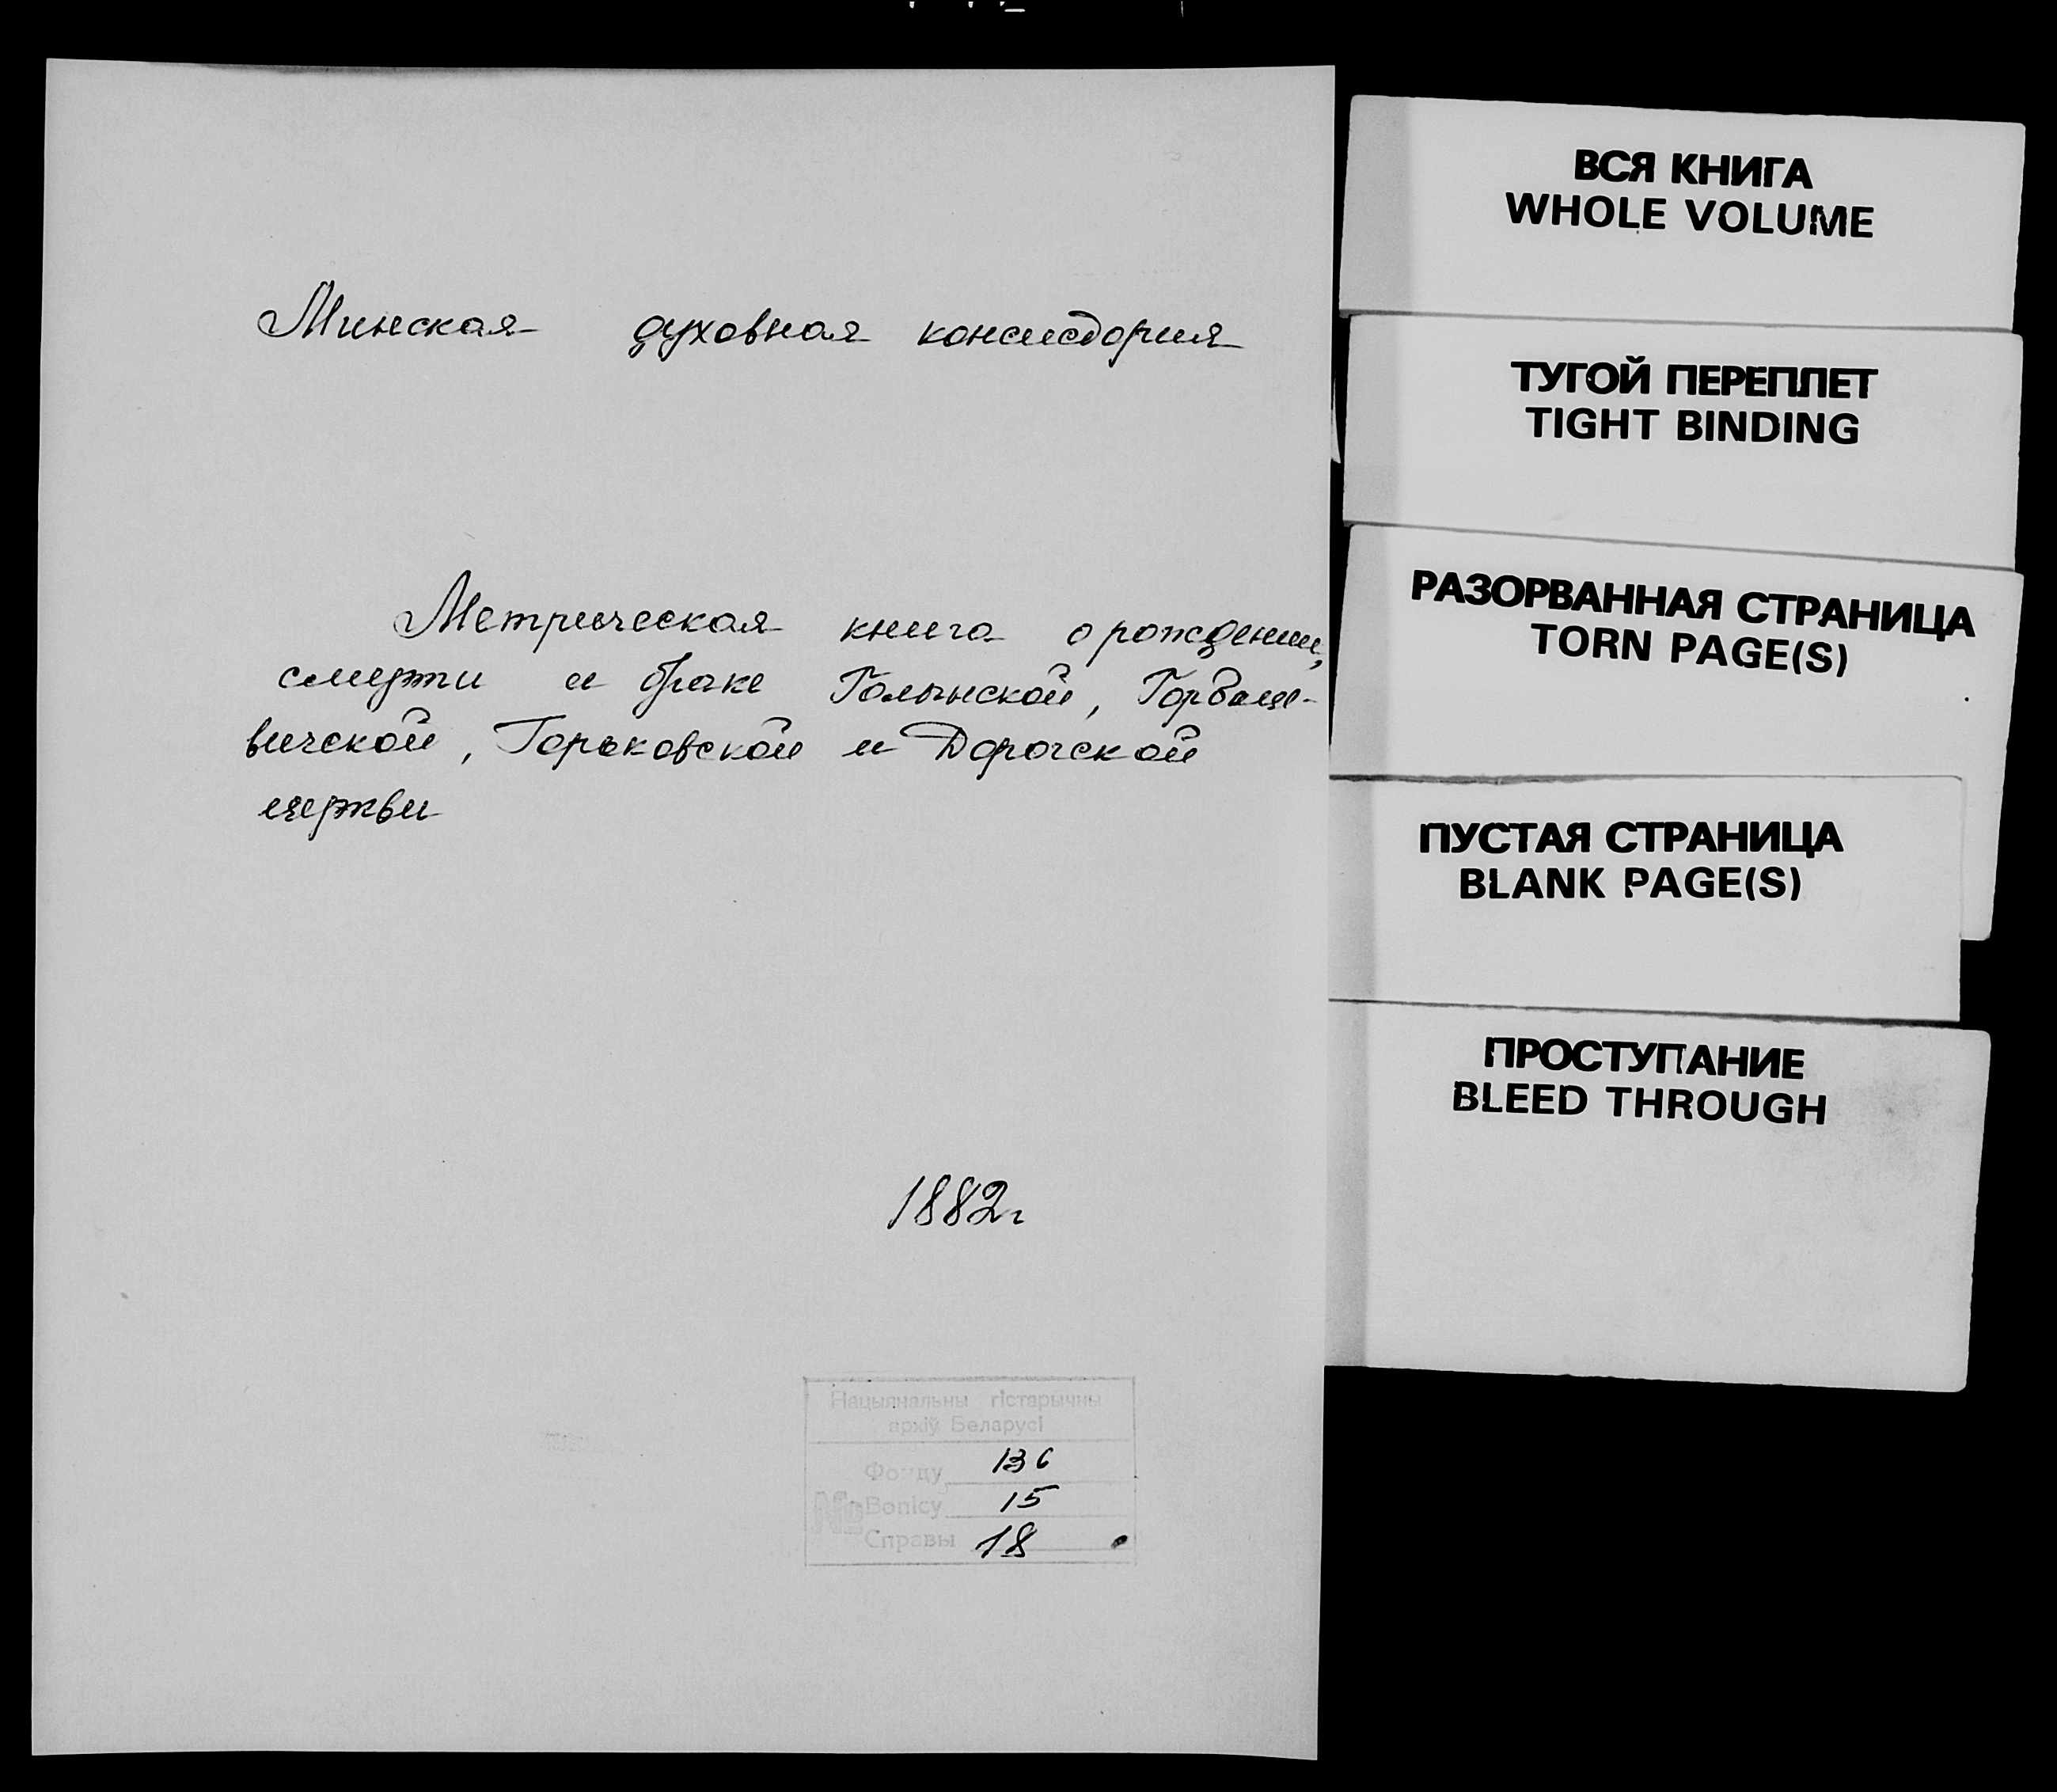 Минская духовная консистория
Метрическая книга о рождении,
смерти и браке Голынской, Горбаце-
вичской, Горковской и Дорогской
церкви
1882г
Нацыянальны гістарычны
архіў Беларусі
Фонду 136
№ Вопісу 15
Справы 18
ВСЯ КНИГА
WHOLE VOLUME
ТУГОЙ ПЕРЕПЛЕТ
TIGHT BINDING
РАЗОРВАННАЯ СТРАНИЦА
TORN PAGE(S)
ПУСТАЯ СТРАНИЦА
BLANK PAGE(S)
ПРОСТУПАНИЕ
BLEED THROUGH